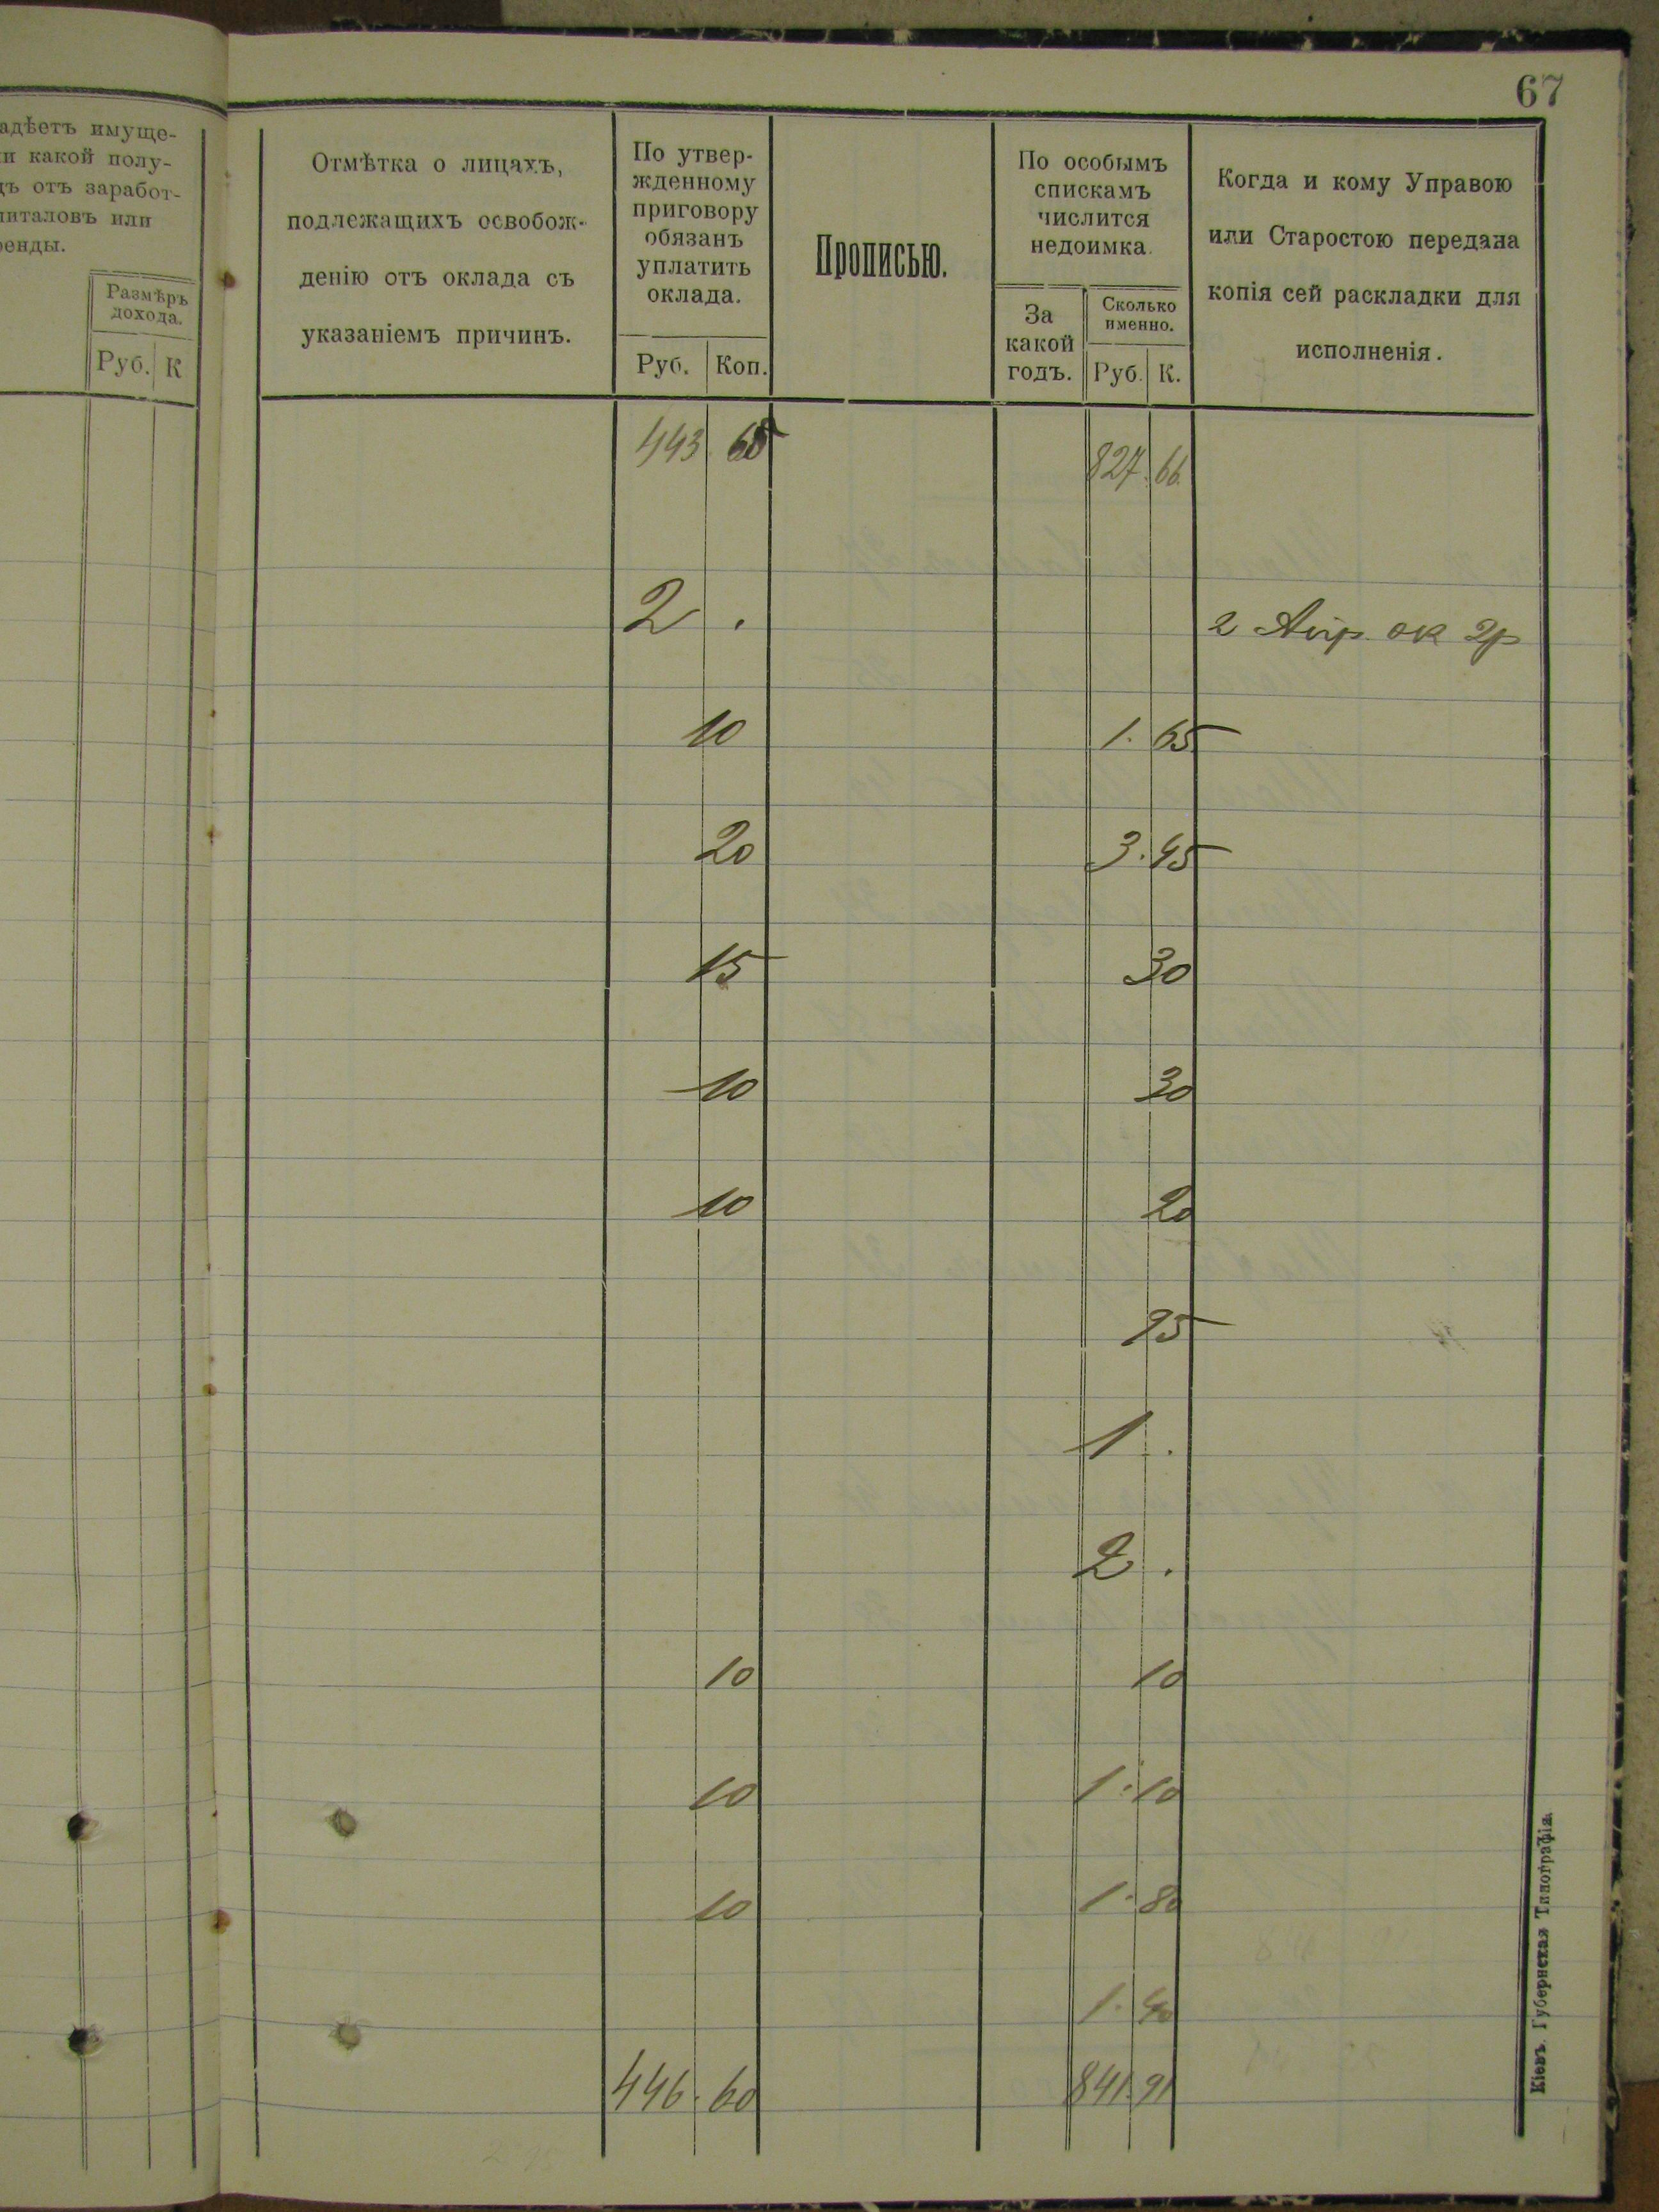 67
адѣетъ имуще-
и какой полу-
дъ отъ заработ-
питаловъ или
ренды.
Размѣръ
дохода.
Руб. К
Отмѣтка о лицахъ,
подлежащихъ освобож-
денію отъ оклада съ
указаніемъ причинъ.
По утвер-
жденному
приговору
обязанъ
уплатить
оклада.
Руб. Коп.
Прописью.
По особымъ
спискамъ
числится
недоимка.
За
какой
годъ.
Сколько
именно.
Руб. К.
Когда и кому Управою
или Старостою передана
копія сей раскладки для
исполненія.
443 65 827. 66.
2 . 2 Апр. ок 2р
10 1. 65
20 3. 45
15 30
10 30
10 20
95
1 .
2 .
10 10
10 1. 10
10 1. 80
1. 40
446. 60 841. 91
Кіевъ. Губернская Типографія.